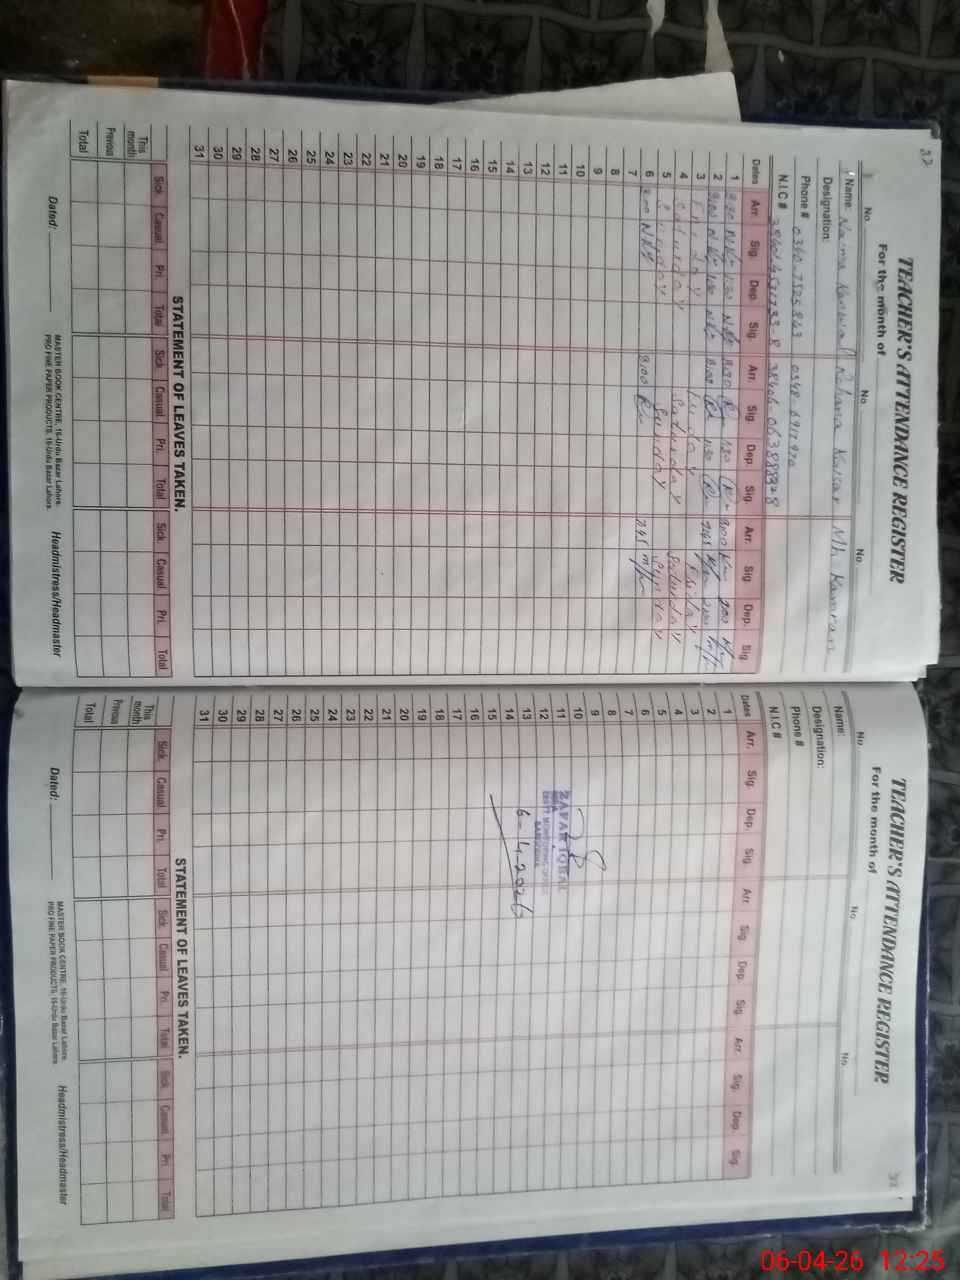 32
TEACHER'S ATTENDANCE REGISTER
For the month of
No. No. No.
Name: Naima Kanwal Rehana Kausar Mh Kamran
Designation:
Phone # 0340-7525843 0348-6912920
N.I.C # 38406-0638892-8
Dates Arr. Sig. Dep. Sig. Arr. Sig. Dep. Sig. Arr. Sig. Dep. Sig.
1 8:30 1:30 8:30 1:30 9:00 2:00
2 8:00 1:30 8:00 1:30 7:45 2:00
3 Friday Friday Friday
4 Saturday Saturday Saturday
5 Sunday Sunday Sunday
6 8:00 8:00 7:45
7
8
9
10
11
12
13
14
15
16
17
18
19
20
21
22
23
24
25
26
27
28
29
30
31
STATEMENT OF LEAVES TAKEN.
Sick. Casual. Pri. Total Sick. Casual. Pri. Total Sick. Casual. Pri. Total
This month
Previous
Total
Dated:
MASTER BOOK CENTRE, 16-Urdu Bazar Lahore.
PRO FINE PAPER PRODUCTS. 16-Urdu Bazar Lahore.
Headmistress/Headmaster
TEACHER'S ATTENDANCE REGISTER
For the month of
No. No. No.
Name:
Designation:
Phone #
N.I.C #
Dates Arr. Sig. Dep. Sig. Arr. Sig. Dep. Sig. Arr. Sig. Dep. Sig.
1
2
3
4
5
6
7
8
9
10
11
12
13
14
15
16
17
18
19
20
21
22
23
24
25
26
27
28
29
30
31
ZAFAR IQBAL
6-4-2026
STATEMENT OF LEAVES TAKEN.
Sick. Casual. Pri. Total Sick. Casual. Pri. Total Sick. Casual. Pri. Total
This month
Previous
Total
Dated:
MASTER BOOK CENTRE, 16-Urdu Bazar Lahore.
PRO FINE PAPER PRODUCTS. 16-Urdu Bazar Lahore.
Headmistress/Headmaster
06-04-26 12:25